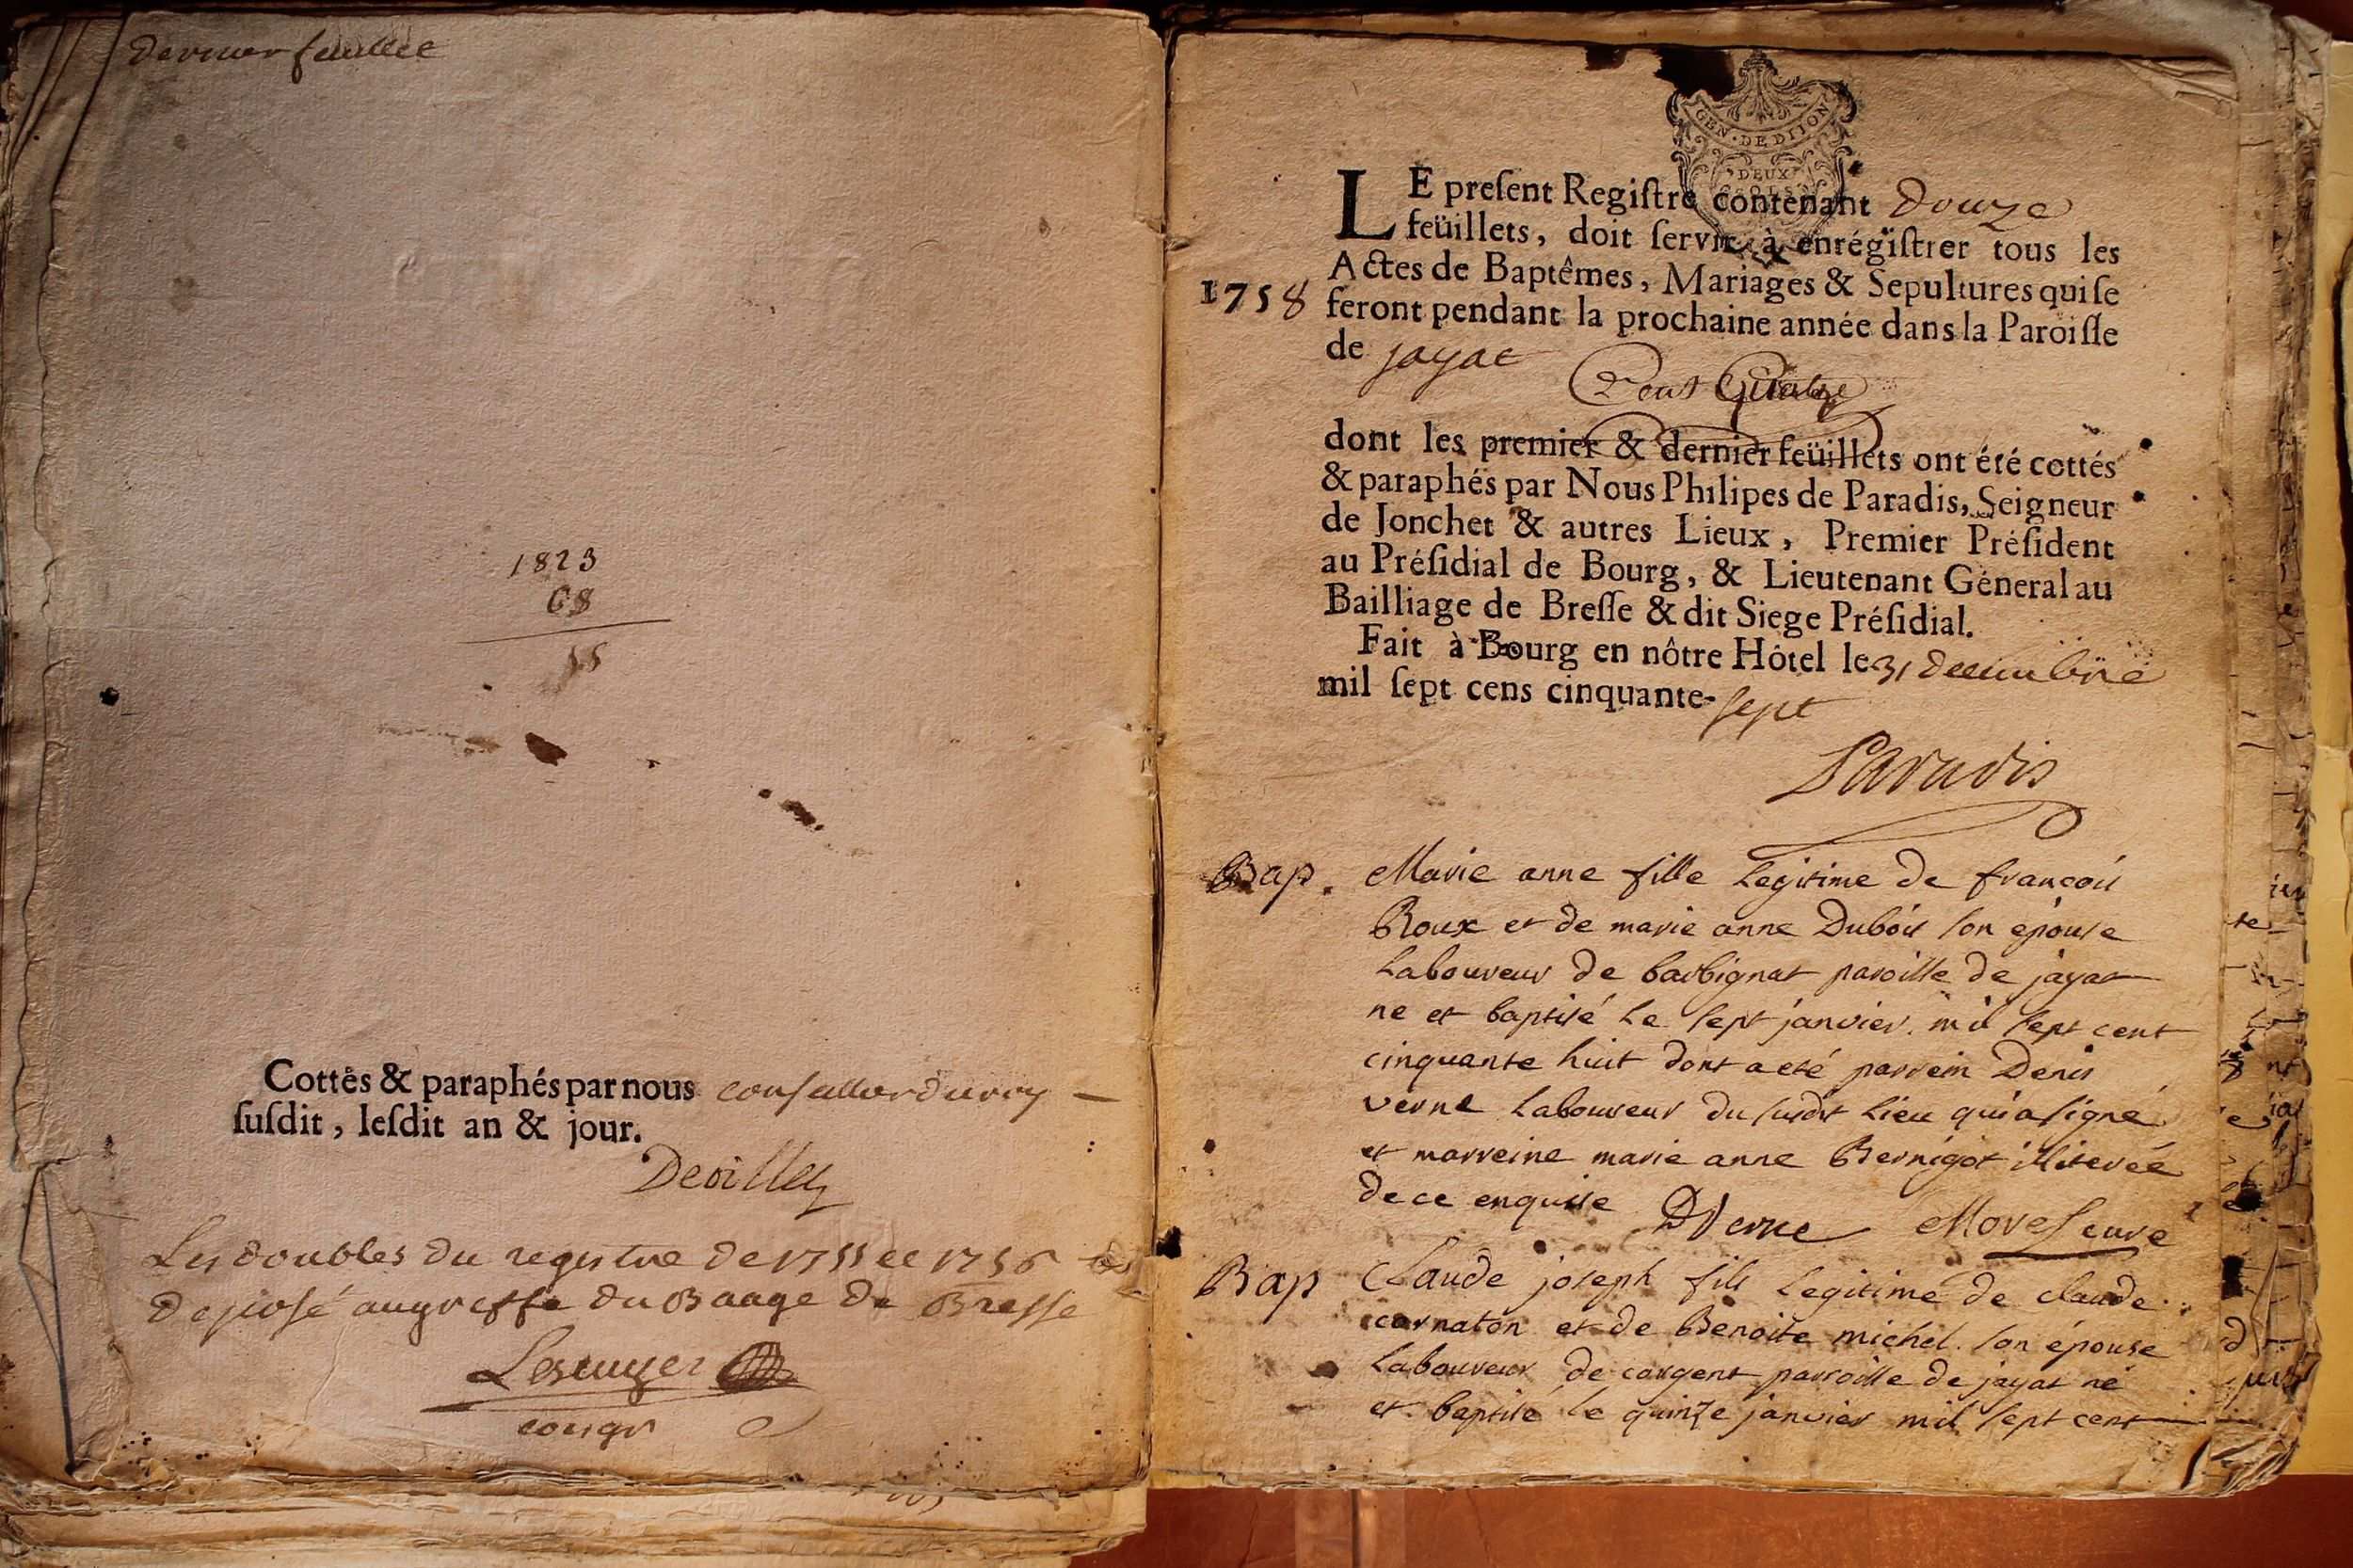 Dernier feuillet
1823
68
55
Cottés & paraphés par nous conseiller du roy
susdit, lesdit an & jour.
Devilley
Les doubles du registre de 1755 et 1756
Deposé au greffe du Baage de Bresse
Lescuyer
GEN · DE DIJON
DEUX
SOLS
LE present Registre contenant Douze
feüillets, doit servir à enrégistrer tous les
Actes de Baptêmes, Mariages & Sepultures qui se
1758 feront pendant la prochaine année dans la Paroisse
de jayat
dont les premier & dernier feüillets ont été cottés
& paraphés par Nous Philipes de Paradis, Seigneur
de Jonchet & autres Lieux, Premier Président
au Présidial de Bourg, & Lieutenant Géneral au
Bailliage de Bresse & dit Siege Présidial.
Fait à Bourg en nôtre Hôtel le 31 Decembre
mil sept cens cinquante-sept
Paradis
Bap. Marie anne fille Legitime de francois
Roux et de marie anne Dubois son epouse
Laboureur de barbignat paroisse de jayat
ne et baptisé Le sept janvier mil sept cent
cinquante huit dont a eté parrein Denis
verne Laboureur du susdit Lieu qui a signé
et marreine marie anne Bernigot illiterée
de ce enquise DVerne
Bap Claude joseph fils Legitime de claude
carnaton et de Benoite michel son épouse
Laboureur de cargent parroisse de jayat né
et baptisé le quinze janvier mil sept cent